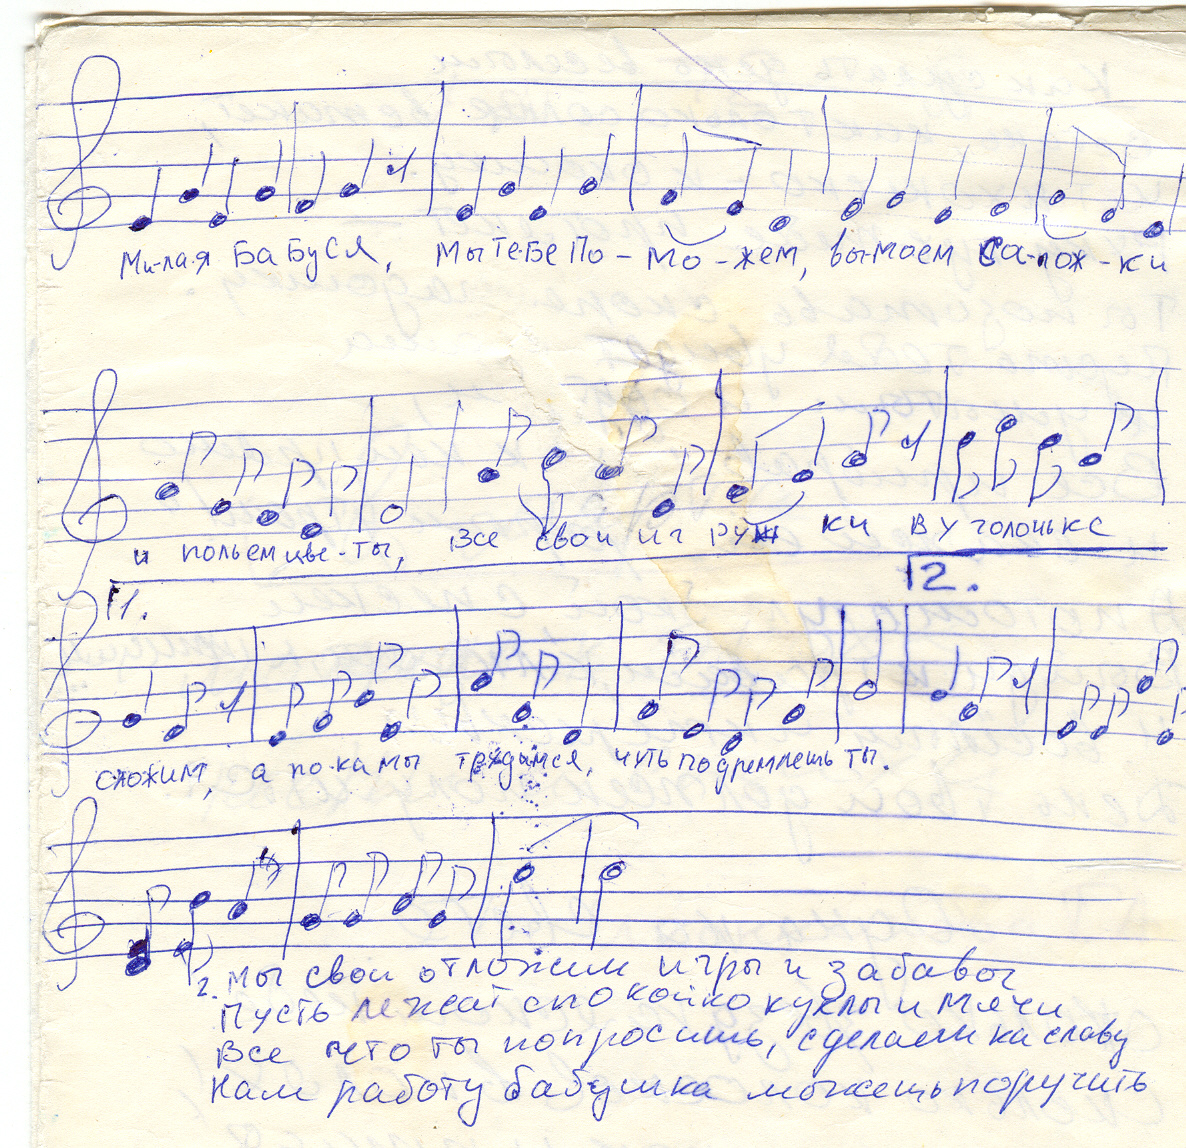 Ми-ла-я Бабуся, мы те-бе по - мо - жем, вы-моем са-пож-ки
и польем цве-ты, все свои иг руж ки в уголочьке
1. 2.
сложим, а по-ка мы трудимся, чуть подремлешь ты.
2. Мы свои отложим игры и забавы
Пусть лежат спокойно куклы и мячи
Все что ты попросишь, сделаем на славу
Нам работу бабушка можешь поручить